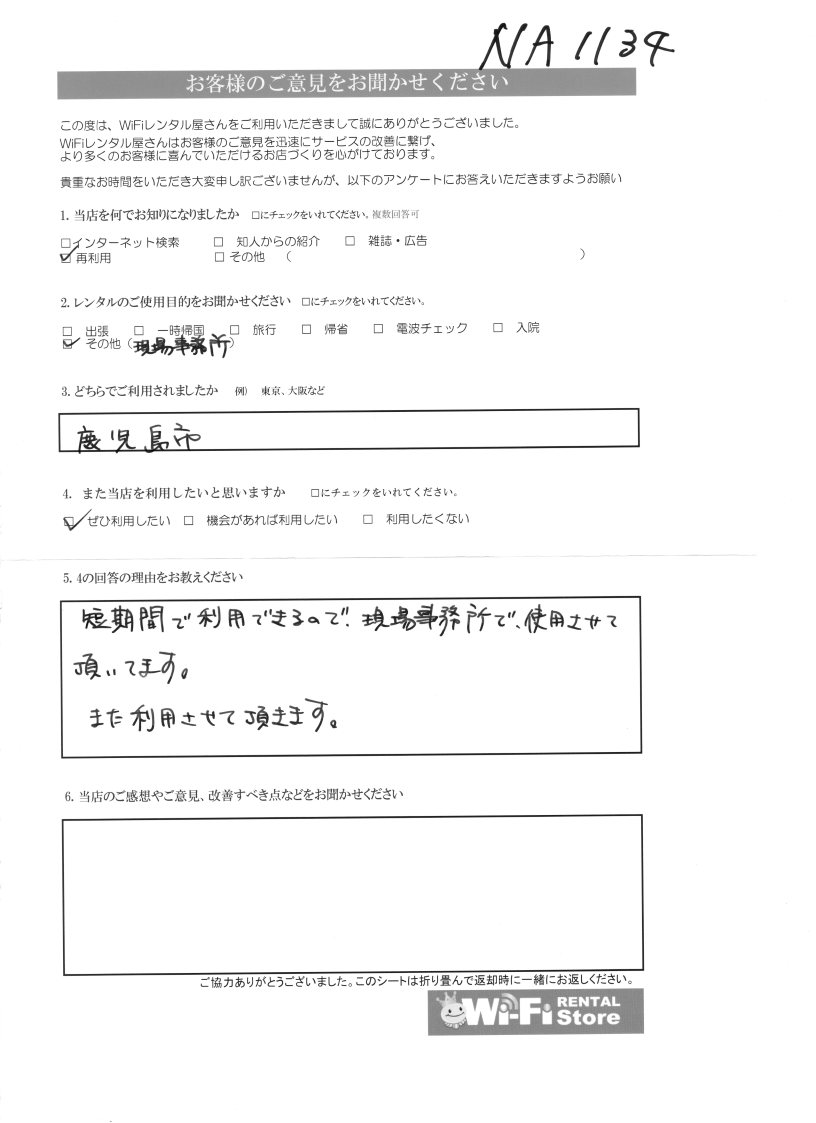 NA1134
お客様のご意見をお聞かせください
この度は、WiFiレンタル屋さんをご利用いただきまして誠にありがとうございました。
WiFiレンタル屋さんはお客様のご意見を迅速にサービスの改善に繋げ、
より多くのお客様に喜んでいただけるお店づくりを心がけております。
貴重なお時間をいただき大変申し訳ございませんが、以下のアンケートにお答えいただきますようお願い
1. 当店を何でお知りになりましたか □にチェックをいれてください。複数回答可
□インターネット検索 □ 知人からの紹介 □ 雑誌・広告
☑ 再利用 □ その他 ( )
2. レンタルのご使用目的をお聞かせください □にチェックをいれてください。
□ 出張 □ 一時帰国 □ 旅行 □ 帰省 □ 電波チェック □ 入院
☑ その他 (現場事務所)
3. どちらでご利用されましたか 例) 東京、大阪など
鹿児島市
4. また当店を利用したいと思いますか □にチェックをいれてください。
☑ ぜひ利用したい □ 機会があれば利用したい □ 利用したくない
5. 4の回答の理由をお教えください
短期間で利用できるので、現場事務所で、使用させて
頂いてます。
また利用させて頂きます。
6. 当店のご感想やご意見、改善すべき点などをお聞かせください
ご協力ありがとうございました。このシートは折り畳んで返却時に一緒にお返しください。
Wi-Fi RENTAL Store